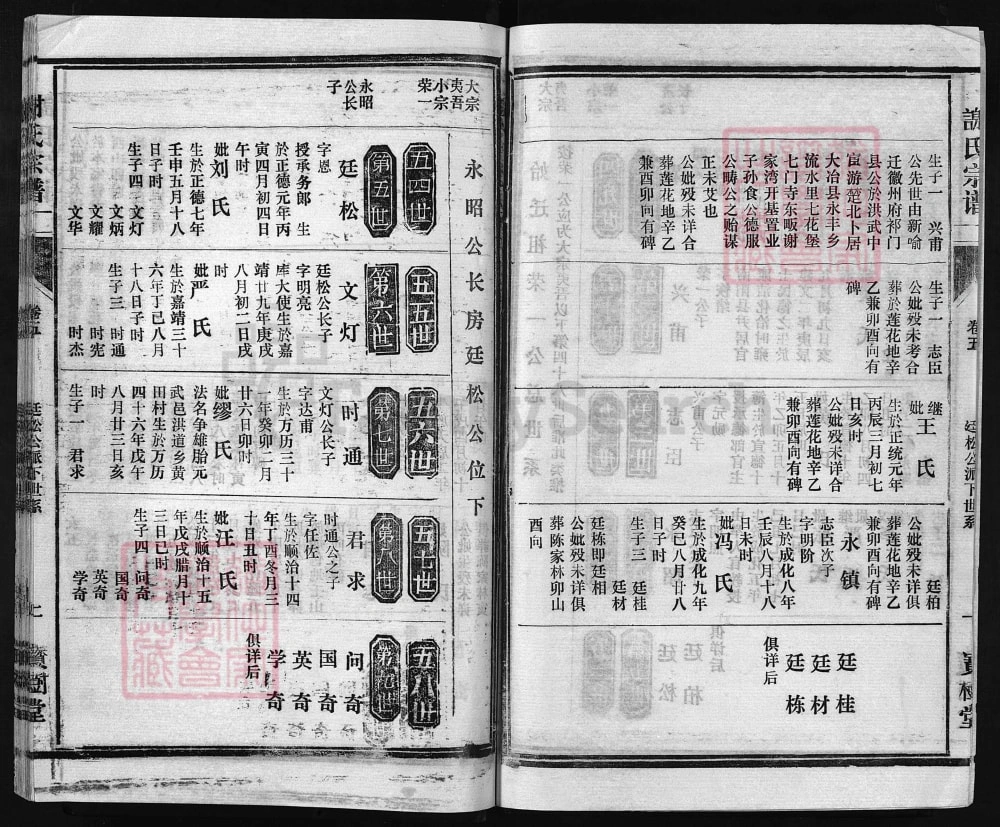 謝氏宗谱
卷五
廷松公派下世系
生子一 兴甫
公先世由新喻
迁徽州府祁门
县公於洪武中
宦游楚北卜居
大冶县永丰乡
流水里七花堡
七门寺东畈谢
家湾开基置业
子孙食公德服
公畴公之贻谋
正未艾也
公妣殁未详合
葬莲花地辛乙
兼酉卯向有碑
生子一 志臣
公妣殁未考合
葬於莲花地辛
乙兼卯酉向有
碑
继妣王氏
生於正统元年
丙辰三月初七
日亥时
公妣殁未详合
葬莲花地辛乙
兼卯酉向有碑
廷柏
公妣殁未详俱
葬莲花地辛乙
兼卯酉向有碑
永镇
志臣次子
字明阶
生於成化八年
壬辰八月十八
日未时
妣冯氏
生於成化九年
癸巳八月廿八
日子时
生子三 廷桂
廷材
廷栋即廷相
公妣殁未详俱
葬陈家林卯山
酉向
廷桂
廷材
廷栋
俱详后
大宗
夷吾
小宗
荣一
永昭
公长
子
永昭公长房廷松公位下
五四世
第五世
廷松
字恩
授承务郎 生
於正德元年丙
寅四月初四日
午时
妣刘氏
生於正德七年
壬申五月十八
日子时
生子四 文灯
文炳
文耀
文华
五五世
第六世
文灯
廷松公长子
字明亮
库大使生於嘉
靖廿九年庚戌
八月初二日戌
时
妣严氏
生於嘉靖三十
六年丁巳八月
十八日子时
生子三 时通
时宪
时杰
五六世
第七世
时通
文灯公长子
字达甫
生於万历三十
一年癸卯二月
廿六日卯时
妣缪氏
法名争雄胎元
武邑洪道乡黄
田村生於万历
四十六年戊午
八月廿三日亥
时
生子一 君求
五七世
第八世
君求
时通公之子
字任佐
生於顺治十四
年丁酉冬月三
十日丑时
妣汪氏
生於顺治十五
年戊戌腊月十
三日巳时
生子四 问奇
国奇
英奇
学奇
五八世
第九世
问奇
国奇
英奇
学奇
俱详后